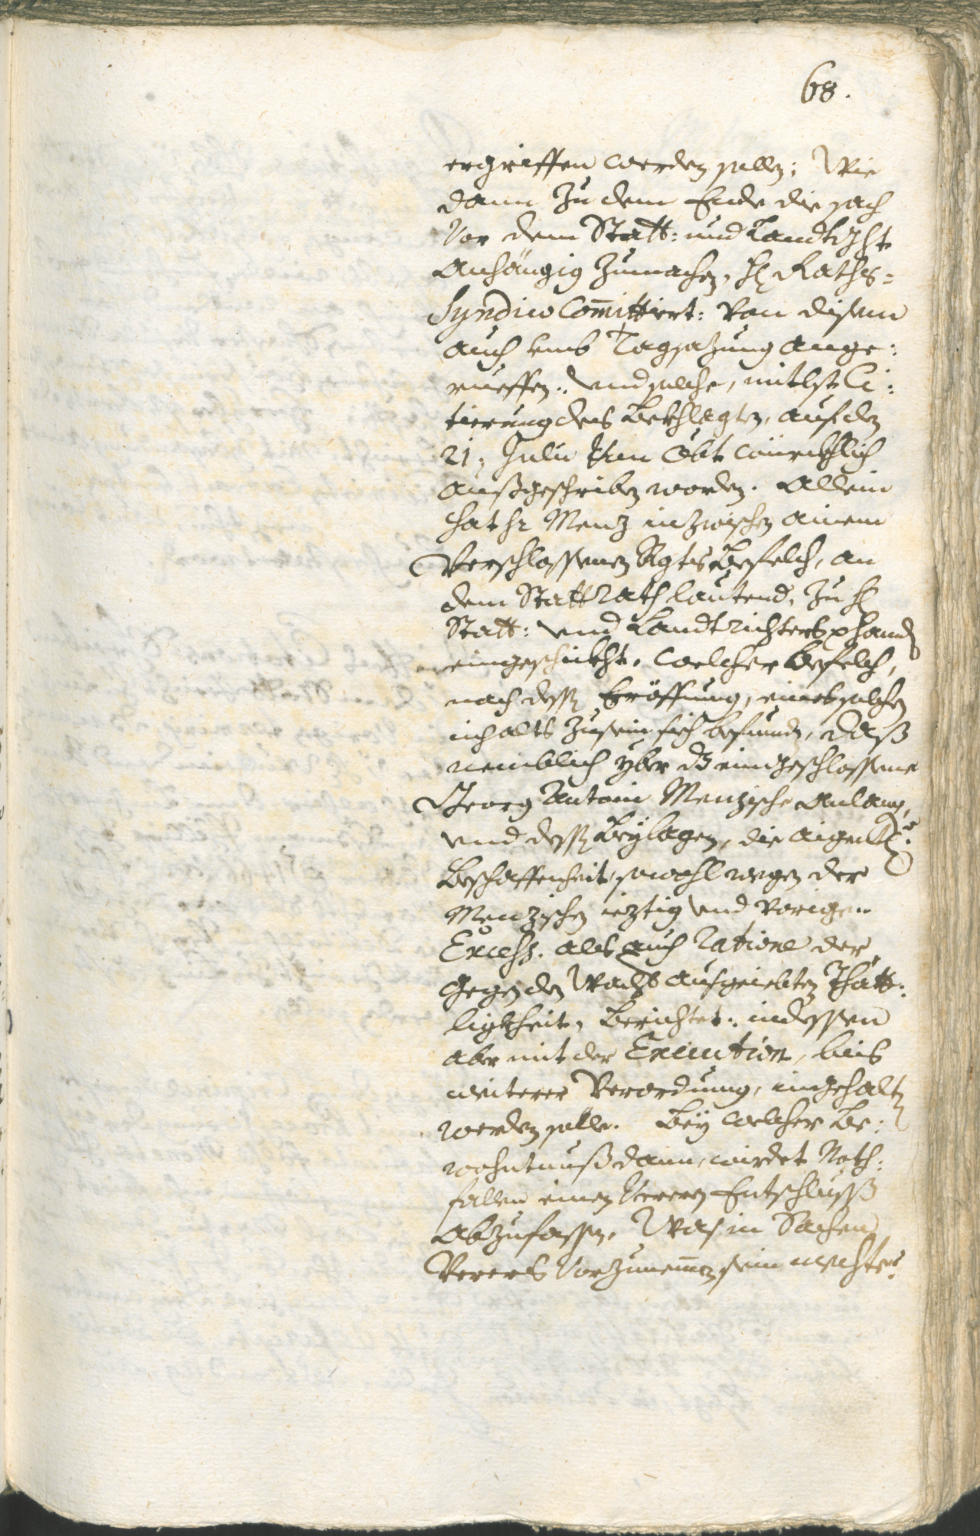 68.
ergriffen werden sollen; Wie
dann zu dem Ende die sach
Vor dem Statt: und Landtgeht
Anhängig zumachen, H Raths=
Syndico Com̄ittiert: Von disem
auch umb Tagsazung ange:
rueffen: Und solche, mitlst Ci:
tierung des Bekhlagten, auf den
21, Julii
außgeschriben worden. Allein
hat hr Menz inzwischen ainem
Verschlossenen Rgts Befelch, an
dem Stattrath lautend, zu H
Statt: und Landtrichters handen
eingeschickht, welcher Befelch,
nach dessen Eröffnung, eines solchen
inhalts zusein sich befunden, daß
nemblich yber dz eingeschlossene
Georg Antoni Menzische Anlangen,
und dessen Beylagen, die aigentliche
Beschaffenheit, sowohl wegen der
Menzischen ieztig und vorigen
Excess. als auch ratione der
gegen den Wachs ausgeiebten Thätt:
ligkheiten, berichtet: indessen
aber mit der Execution, biß
weiterer Verordnung, ingehalten
werden solle. Bey welcher Be:
wohntnuß dann, wirdet Noth:
fallen einen Entschluß
Abzufassen, Was in Sachen
Vorzunemmen sein mechte.